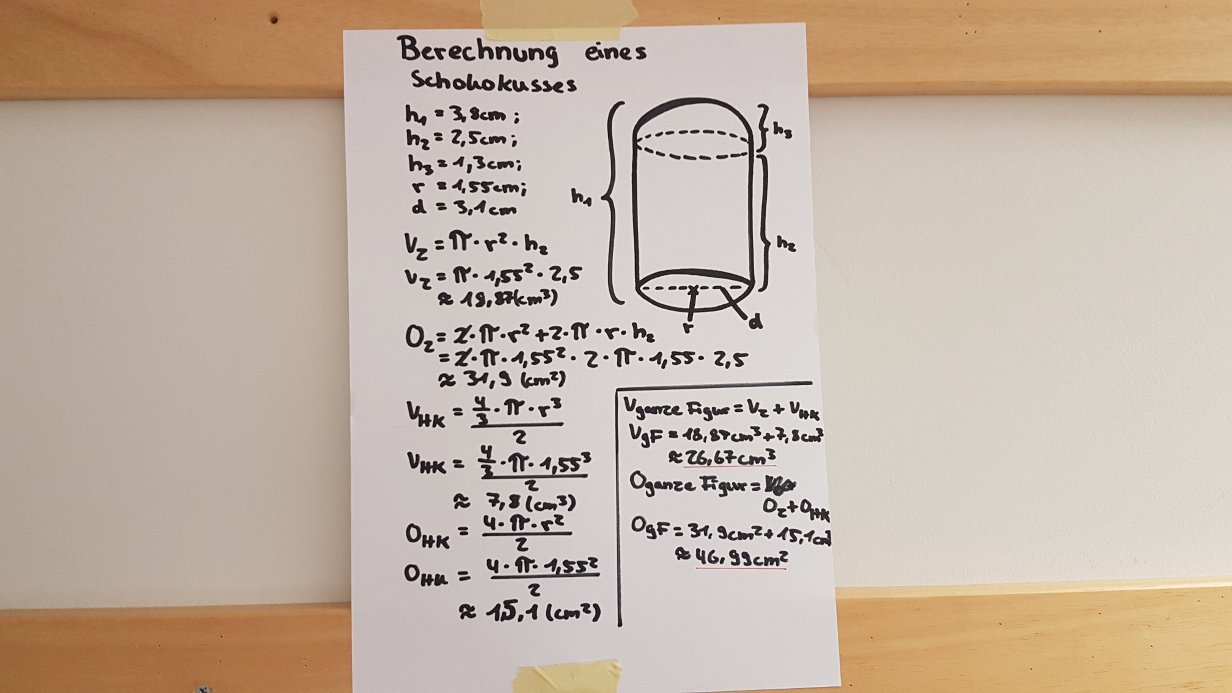 Berechnung eines
Schokokusses
h₁ = 3,8cm ;
h₂ = 2,5cm;
h₃ = 1,3cm;
r = 1,55cm;
d = 3,1cm
V_Z = π · r² · h₂
V_Z = π · 1,55² · 2,5
≈ 18,87(cm³)
O_Z = 2·π·r²+2·π·r·h₂
= 2·π·1,55²·2·π·1,55·2,5
≈ 31,9 (cm²)
V_HK = (4/3·π·r³)/2
V_HK = (4/3·π·1,55³)/2
≈ 7,8(cm³)
O_HK = (4·π·r²)/2
O_HK = (4·π·1,55²)/2
≈ 15,1(cm²)
h₁
h₃
h₂
r
d
V ganze Figur = V_Z + V_HK
V_gF = 18,87cm³+7,8cm³
≈ 26,67cm³
O ganze Figur =
O_Z+O_HK
O_gF = 31,9cm²+15,1cm²
≈ 46,99cm²